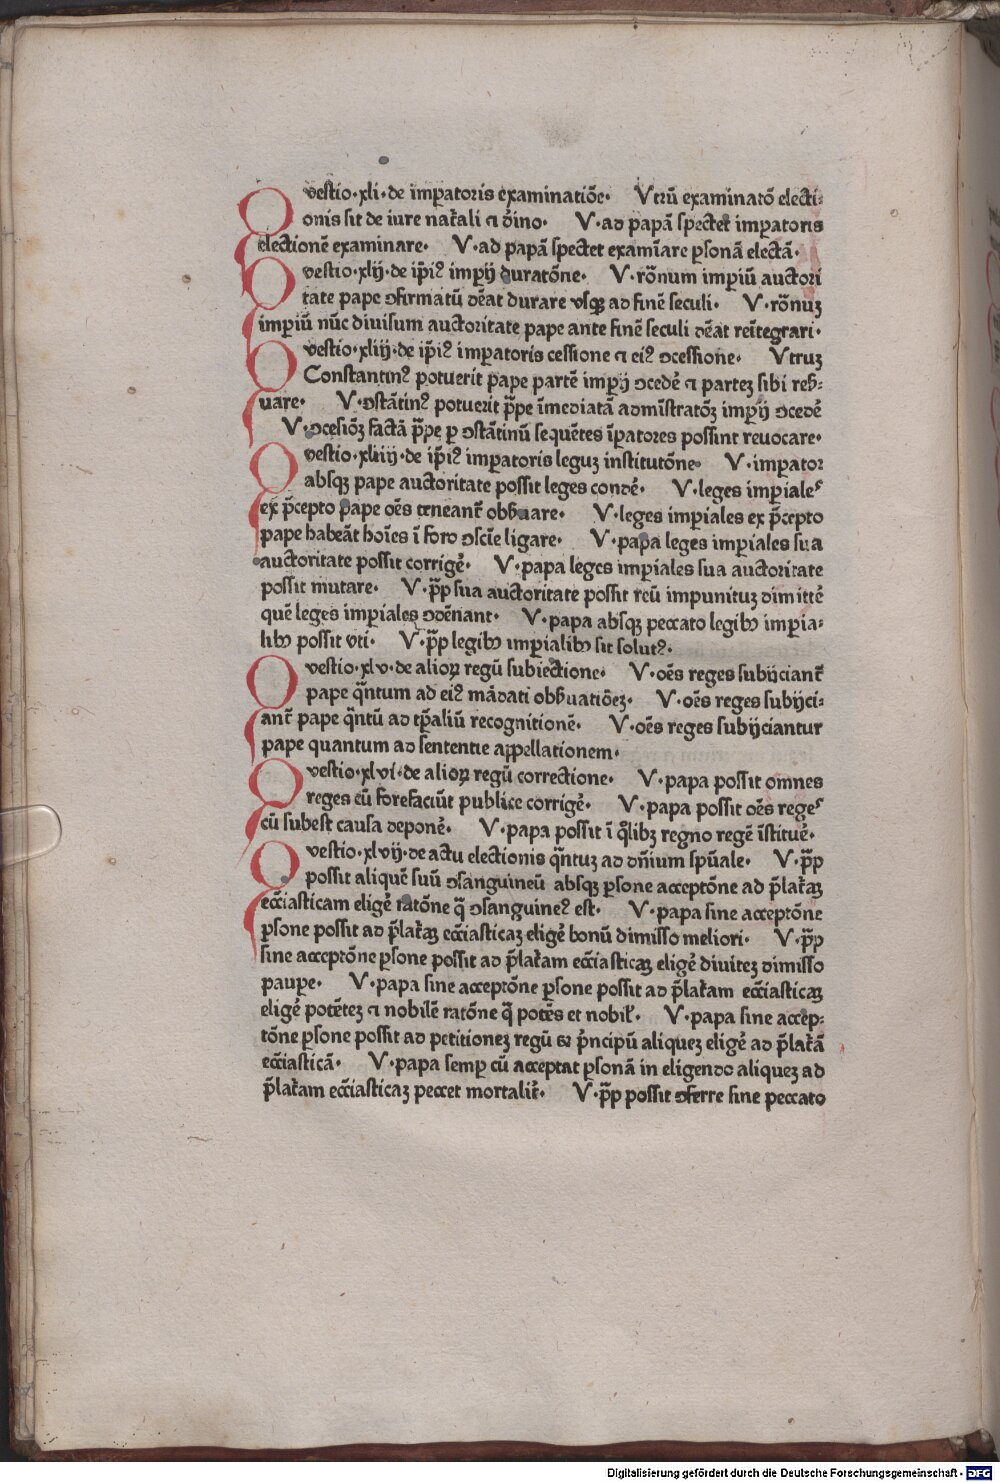 Qvestio·xli·de imꝑatoris examinatiõe· Vtrũ examinatõ electi-
onis sit de iure nat̃ali ⁊ diĩno· V·ad papã spectet imꝑatoris
electionẽ examinare· V·ad papã spectet examĩare ꝑsonã electã·
Qvestio·xlij·de ip̃iꝰ imꝑij duratõne· V·rõnum imꝑiũ auctori
tate pape ꝯfirmatũ dẽat durare vsqꝫ ad finẽ seculi· V·rõnuꝫ
imꝑiũ nũc diuisum auctoritate pape ante finẽ seculi dẽat reĩtegrari·
Qvestio·xliij·de ip̃iꝰ imꝑatoris cessione ⁊ eiꝰ ꝯcessione· Vtruꝫ
Constantinꝰ potuerit pape partẽ imꝑij ꝯcedẽ ⁊ parteꝫ sibi reẜ-
uare· V·ꝯstãtinꝰ potuerit p̃pe ĩmediatã admĩstratõꝫ imꝑij ꝯcedẽ
V·ꝯcesiõꝫ factã p̃pe ꝑ ꝯstãtinũ sequẽtes ĩꝑatores possint reuocare·
Qvestio·xliiij·de ip̃iꝰ imꝑatoris leguꝫ institutõne· V·imꝑator
absqꝫ pape auctoritate possit leges condẽ· V·leges imꝑiales
ex p̃cepto pape oẽs teneant̃ obẜuare· V·leges imꝑiales ex p̃cepto
pape habeãt hoĩes ĩ foro ꝯscĩe ligare· V·papa leges imꝑiales sua
auctoritate possit corrigẽ· V·papa leges imꝑiales sua auctoritate
possit mutare· V·p̃p sua auctoritate possit reũ impunituꝫ dimittẽ
quẽ leges imꝑiales ꝯdẽnant· V·papa absqꝫ peccato legibꝫ imꝑia-
libꝫ possit vti· V·p̃p legibꝫ imꝑialibꝫ sit solutꝰ·
Qvestio·xlv·de alioꝝ regũ subiectione· V·oẽs reges subijciant̃
pape q̃ntum ad eiꝰ mãdati obẜuatiõeꝫ· V·oẽs reges subijci-
ant̃ pape q̃ntũ ad tp̃aliũ recognitionẽ· V·oẽs reges subijciantur
pape quantum ad sententie appellationem·
Qvestio·xlvi·de alioꝝ regũ correctione· V·papa possit omnes
reges cũ forefaciũt publice corrigẽ· V·papa possit oẽs reges
cũ subest causa deponẽ· V·papa possit ĩ q̃libꝫ regno regẽ ĩstituẽ·
Qvestio·xlvij·de actu electionis q̃ntuꝫ ad dñium spũale· V·p̃p
possit aliquẽ suũ ꝯsanguineũ absqꝫ ꝑsone acceptõne ad p̃lat̃aꝫ
ecc̃iasticam eligẽ ratõne q̃ ꝯsanguineꝰ est· V·papa sine acceptõne
ꝑsone possit ad p̃lat̃aꝫ ecc̃iasticaꝫ eligẽ bonũ dimisso meliori· V·p̃p
sine acceptõne ꝑsone possit ad p̃lat̃am ecc̃iasticaꝫ eligẽ diuiteꝫ dimisso
pauꝑe· V·papa sine acceptõne ꝑsone possit ad p̃lat̃am ecc̃iasticaꝫ
eligẽ potẽteꝫ ⁊ nobilẽ ratõne q̃ potẽs et nobil̃· V·papa sine accep-
tõne ꝑsone possit ad petitioneꝫ regũ ⁊ p̃ncipũ aliqueꝫ eligẽ ad p̃lat̃ã
ecc̃iasticã· V·papa semꝑ cũ acceptat ꝑsonã in eligendo aliqueꝫ ad
p̃lat̃am ecc̃iasticaꝫ peccet mortalit̃· V·p̃p possit ꝯferre sine peccato
Digitalisierung gefördert durch die Deutsche Forschungsgemeinschaft - DFG